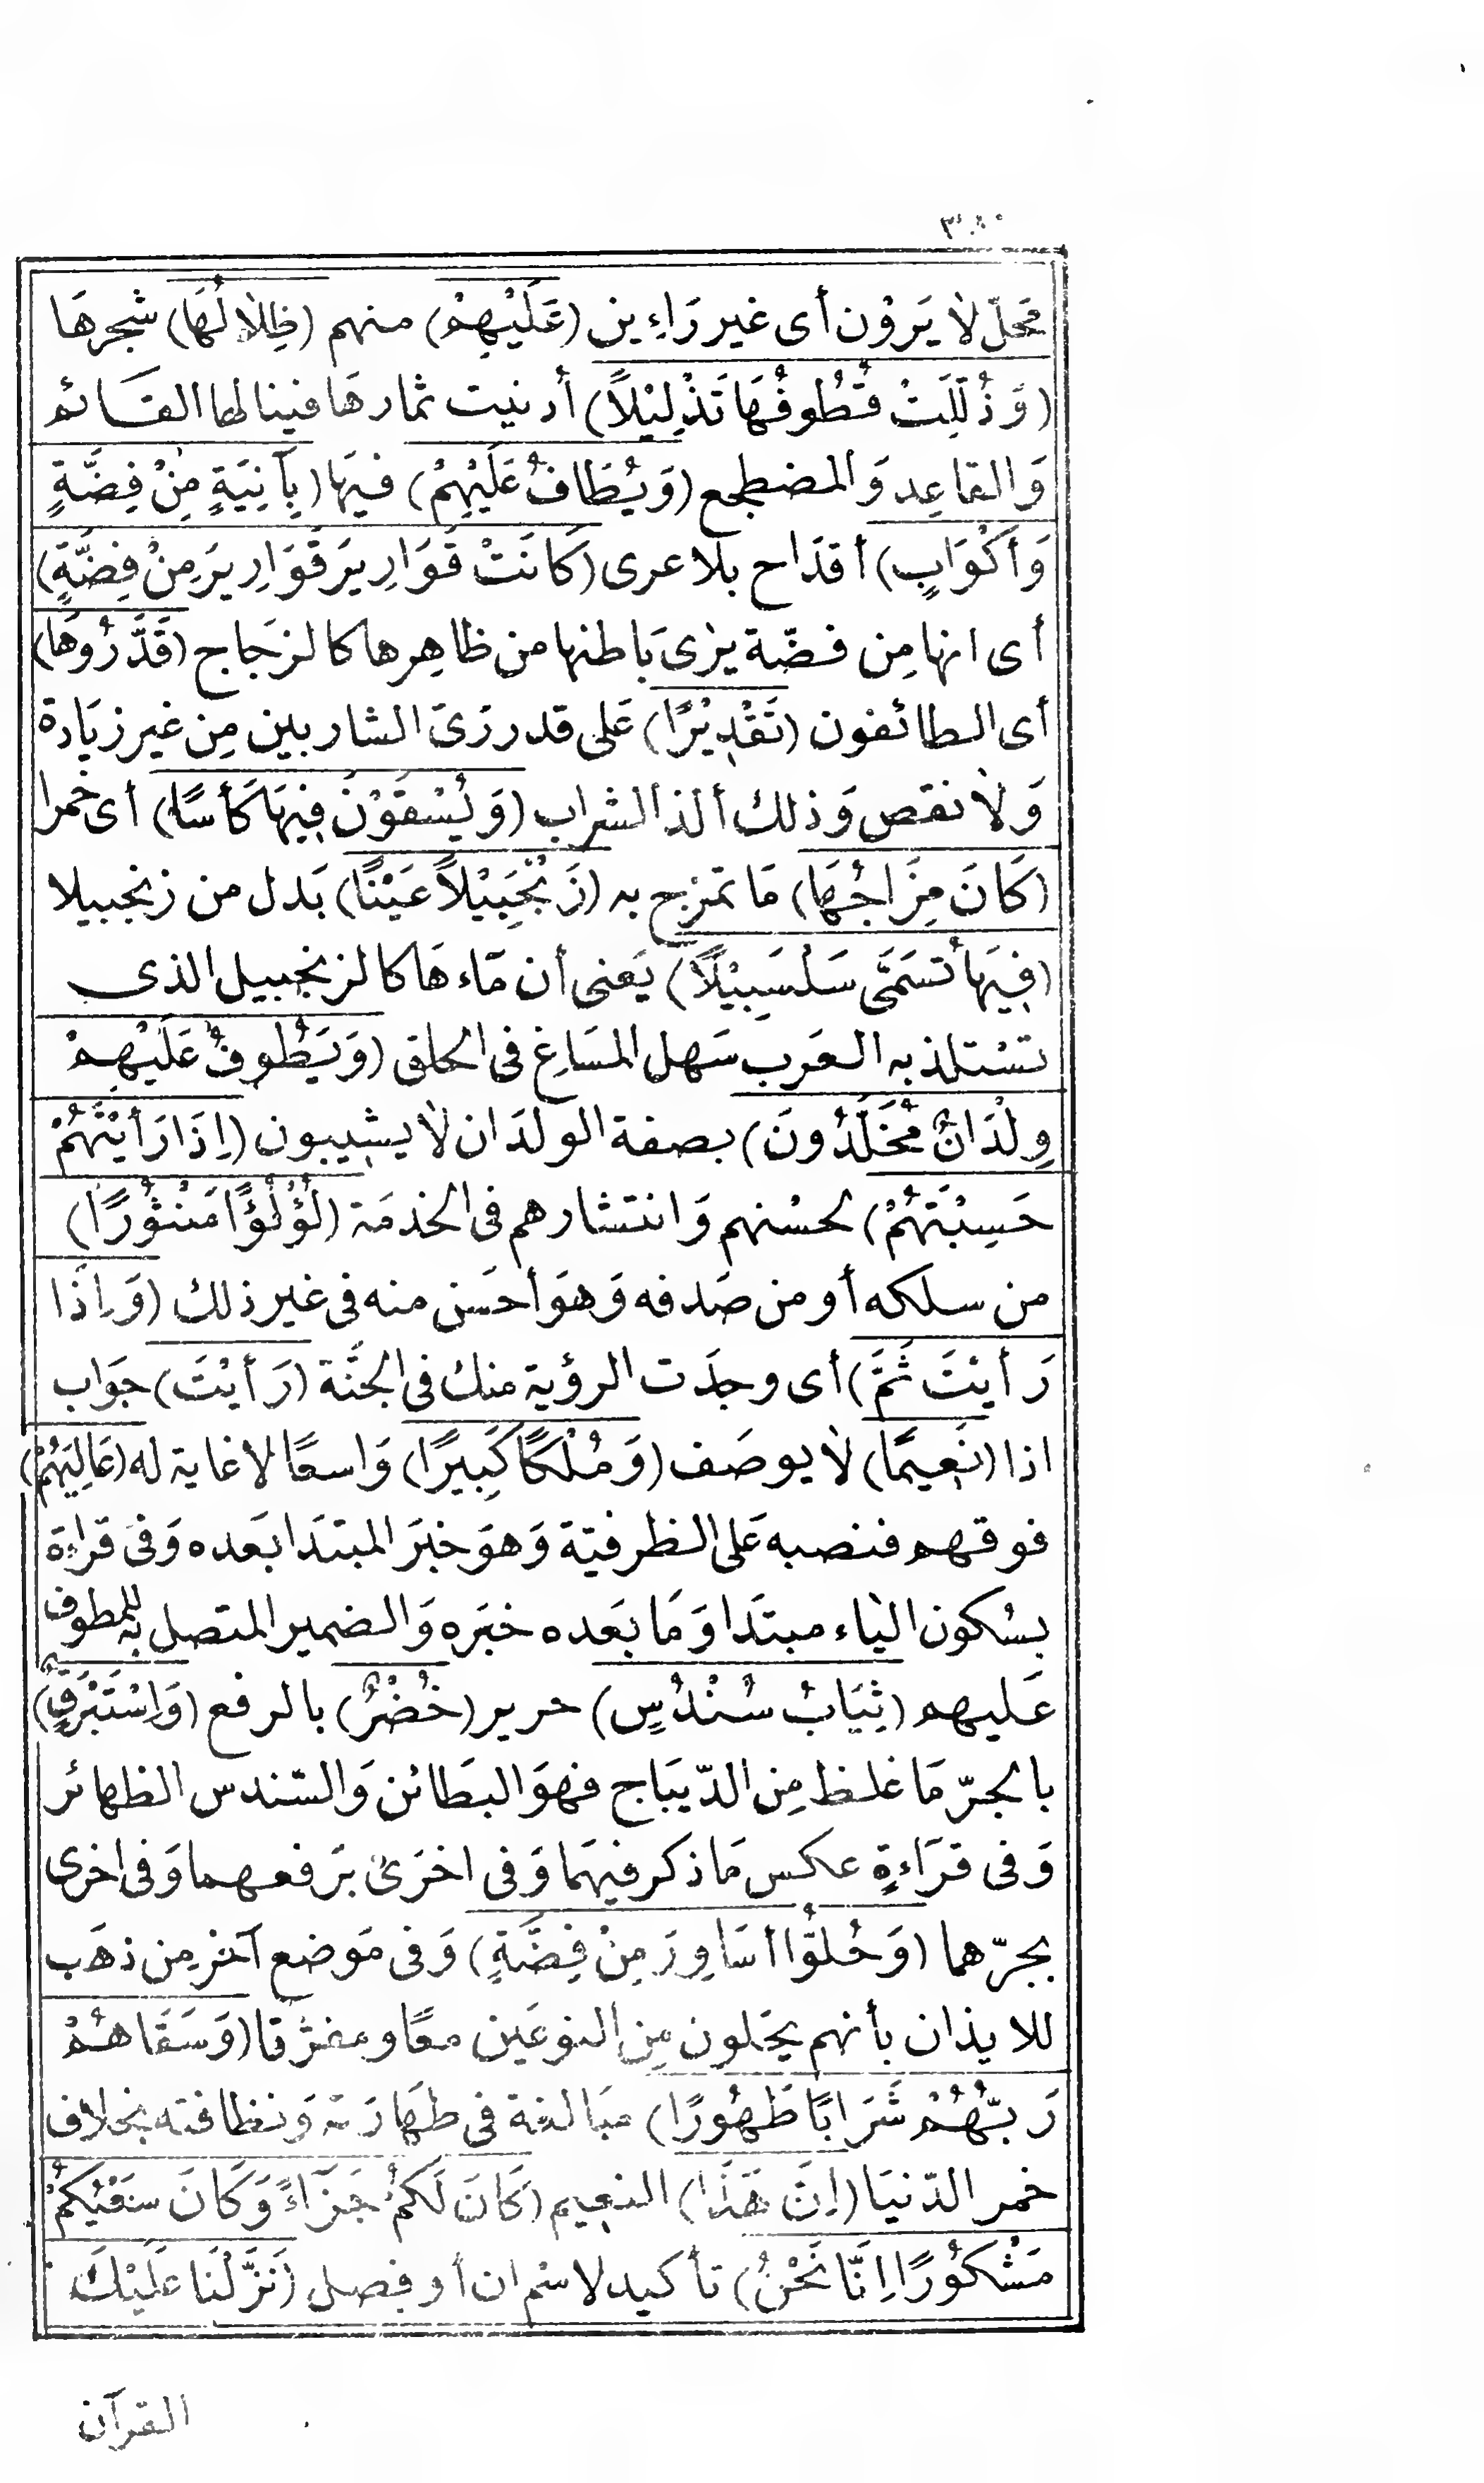 مَحلّ لَا يَرَوْن أى غير رَاءِين (عَلَيْهِمْ) منهم (ظِلَالُهَا) شجرهَا
(وَذُلِّلَتْ قُطُوفُهَا تَذْلِيْلاً) أدنيت ثمارهَا فينالها القَائم
وَالقاعِد وَالمضطجع (وَيُطَافُ عَلَيْهِمْ) فيهَا (بِآنِيَةٍ مِنْ فِضَّةٍ
وَأَكْوَابٍ) أقدَاح بلَا عرى (كَانَتْ قَوَارِيرَ قَوَارِيرَ مِنْ فِضَّةٍ)
أى انها مِن فضّة يرٰىَ بَاطنها من ظاهِرها كالزجَاج (قَدَّرُوهَا)
أى الطائفون (تَقْدِيْرًا) عَلى قدر رَىّ الشاربين مِن غير زيَادة
وَلَا نقص وَذلك ألذ الشراب (وَيُسْقَوْنَ فِيهَا كَأسًا) أى خمرا
(كَانَ مِزَاجُهَا) مَا تمزج به (زَنْجَبِيْلاً عَيْنًا) بَدل من زنجبيلا
(فِيهَا تُسَمَّى سَلْسَبِيْلًا) يَعنى أن مَاءهَا كالزنجبيل الذى
تستلذ به العَرب سَهل المسَاغ فى الحلق (وَيَطُوفُ عَلَيْهِمْ
وِلْدَانٌ مُخَلَّدُونَ) بصفة الولدَان لَا يشيبون (اِذَا رَأَيْتَهُمْ
حَسِبْتَهُمْ) لحسْنهم وَانتشارهم فى الخدمَة (لُؤْلُؤًا مَنْثُورًا)
من سلكه أو من صَدفه وَهوَ أحَسَن منه فى غير ذلك (وَاِذَا
رَأيْتَ ثَمَّ) أى وجدَت الرؤية منك فى الجنَّة (رَأيْتَ) جوَاب
اذا (نَعِيمًا) لَا يوصَف (وَمُلْكًا كَبِيرًا) وَاسعًا لا غاية له (عَالِيَهُمْ)
فوقهم فنصبه عَلى الظرفيّة وَهوَ خبَر المبتدَا بَعده وَفى قراءة
بسُكون اليَاء مبتدَا وَمَا بَعده خبَره وَالضمير المتصل به للمطوف
عَليهم (ثِيَابُ سُنْدُسٍ) حرير (خُضْرٌ) بالرفع (وَاِسْتَبْرَقٍ)
بالجرّ مَا غلظ مِن الدّيبَاج فهوَ البَطائن وَالسّندس الظهائر
وَفى قرَاءةٍ عكس مَا ذكر فيهمَا وَفى اخرَىٰ برَفعهما وَفى اخرى
بجرّهما (وَحُلُّوا أسَاوِرَ مِنْ فِضَّةٍ) وَفى مَوضع آخر مِن ذهَب
للايذان بأنهم يحَلون مِن النوعَين معًا ومفرّقا (وَسَقَاهُمْ
رَبُّهُمْ شَرَابًا طَهُورًا) مبَالغة فى طهَارَته وَنظافته بخلاف
خمر الدّنيَا (اِنَّ هَذَا) النعيم (كَانَ لَكُمْ جَزَاءً وَكَانَ سَعْيُكُمْ
مَشْكُورًا اِنَّا نَحْنُ) تأكيد لاسْم ان أو فصل (نَزَّلْنَا عَلَيْكَ
القرآن